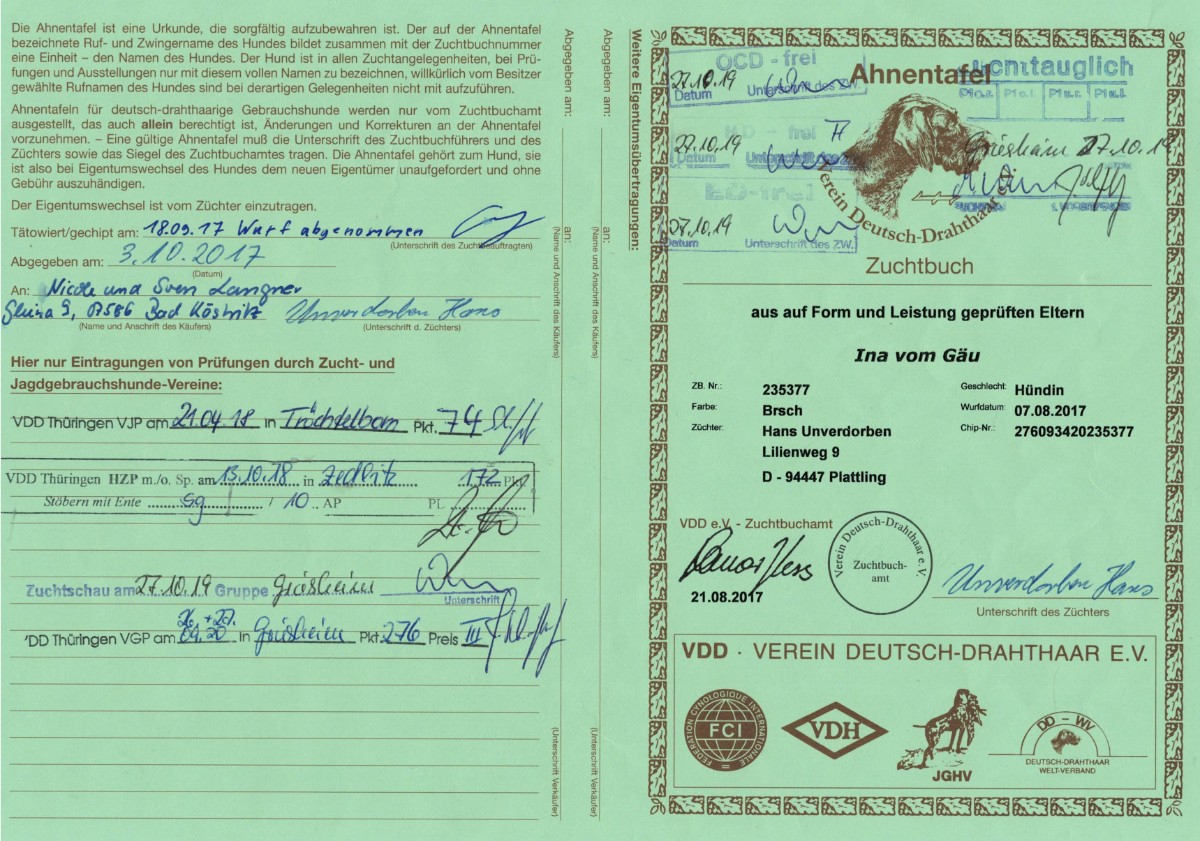 Die Ahnentafel ist eine Urkunde, die sorgfältig aufzubewahren ist. Der auf der Ahnentafel
bezeichnete Ruf- und Zwingername des Hundes bildet zusammen mit der Zuchtbuchnummer
eine Einheit – den Namen des Hundes. Der Hund ist in allen Zuchtangelegenheiten, bei Prü-
fungen und Ausstellungen nur mit diesem vollen Namen zu bezeichnen, willkürlich vom Besitzer
gewählte Rufnamen des Hundes sind bei derartigen Gelegenheiten nicht mit aufzuführen.
Ahnentafeln für deutsch-drahthaarige Gebrauchshunde werden nur vom Zuchtbuchamt
ausgestellt, das auch allein berechtigt ist, Änderungen und Korrekturen an der Ahnentafel
vorzunehmen. – Eine gültige Ahnentafel muß die Unterschrift des Zuchtbuchführers und des
Züchters sowie das Siegel des Zuchtbuchamtes tragen. Die Ahnentafel gehört zum Hund, sie
ist also bei Eigentumswechsel des Hundes dem neuen Eigentümer unaufgefordert und ohne
Gebühr auszuhändigen.
Der Eigentumswechsel ist vom Züchter einzutragen.
Tätowiert/gechipt am: 18.09.17 Wurf abgenommen
(Unterschrift des Zuchtbeauftragten)
Abgegeben am: 3.10.2017
(Datum)
An: Nicole und Sven Langner
Gleina 9, 07586 Bad Köstritz Unverdorben Hans
(Name und Anschrift des Käufers) (Unterschrift d. Züchters)
Hier nur Eintragungen von Prüfungen durch Zucht- und
Jagdgebrauchshunde-Vereine:
VDD Thüringen VJP am 21.04.18 in Tröchtelborn Pkt. 74
VDD Thüringen HZP m./o. Sp. am 13.10.18 in Zedlitz 172 Pkt
Stöbern mit Ente sg / 10 .. AP PL
Zuchtschau am 27.10.19 Gruppe Griesheim
Unterschrift
DD Thüringen VGP am 26.+27. 09.20 in Griesheim Pkt. 276 Preis III
Abgegeben am:
an:
(Name und Anschrift des Käufers)
(Unterschrift Verkäufer)
Abgegeben am:
an:
(Name und Anschrift des Käufers)
(Unterschrift Verkäufer)
Weitere Eigentumsübertragungen:
OCD - frei
27.10.19
Datum Unterschrift des ZW.
HD - frei
27.10.19
Datum
ED-frei
27.10.19
Datum Unterschrift des ZW.
Ahnentafel
Griesheim 27.10.19
Verein Deutsch-Drahthaar
Zuchtbuch
aus auf Form und Leistung geprüften Eltern
Ina vom Gäu
ZB. Nr.: 235377 Geschlecht: Hündin
Farbe: Brsch Wurfdatum: 07.08.2017
Züchter: Hans Unverdorben Chip-Nr.: 276093420235377
Lilienweg 9
D - 94447 Plattling
VDD e.V. - Zuchtbuchamt
Verein Deutsch-Drahthaar e.V.
Zuchtbuch-
amt
21.08.2017
Unverdorben Hans
Unterschrift des Züchters
VDD · VEREIN DEUTSCH-DRAHTHAAR E.V.
FEDERATION CYNOLOGIQUE INTERNATIONALE
FCI
VDH
JGHV
DD – WV
DEUTSCH-DRAHTHAAR
WELT-VERBAND